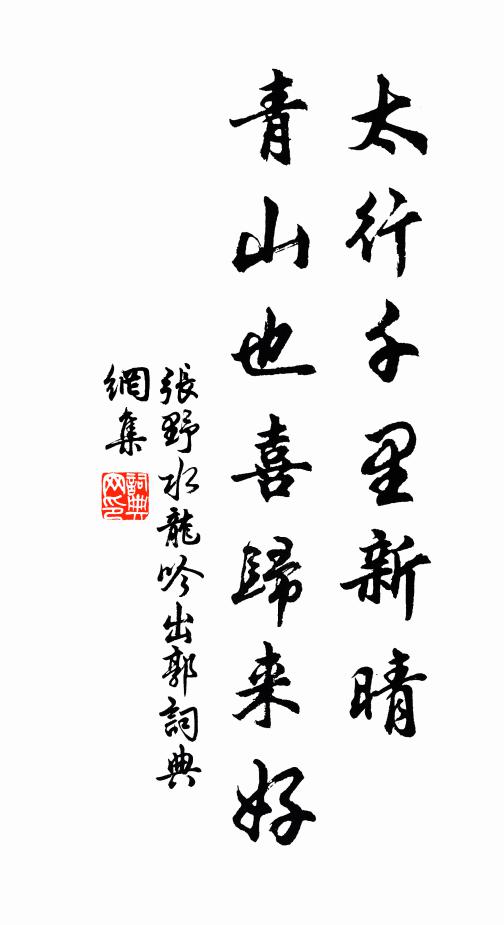 太行千里新晴
青山也喜歸来好
張野水龍吟出郭詞典
網集
詞典
网印